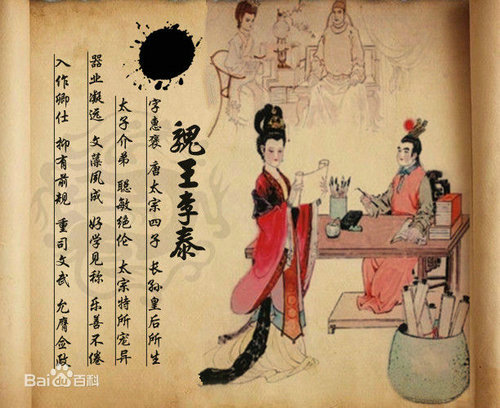 魏王李泰
字惠褒 唐太宗四子 长孙皇后所生
太子介弟 聪敏绝伦 太宗特所宠异
器业凝远 文藻夙成 好学见称 乐善不倦
入作卿仕 抑有前规 重司文武 允膺佥政
Bai百科